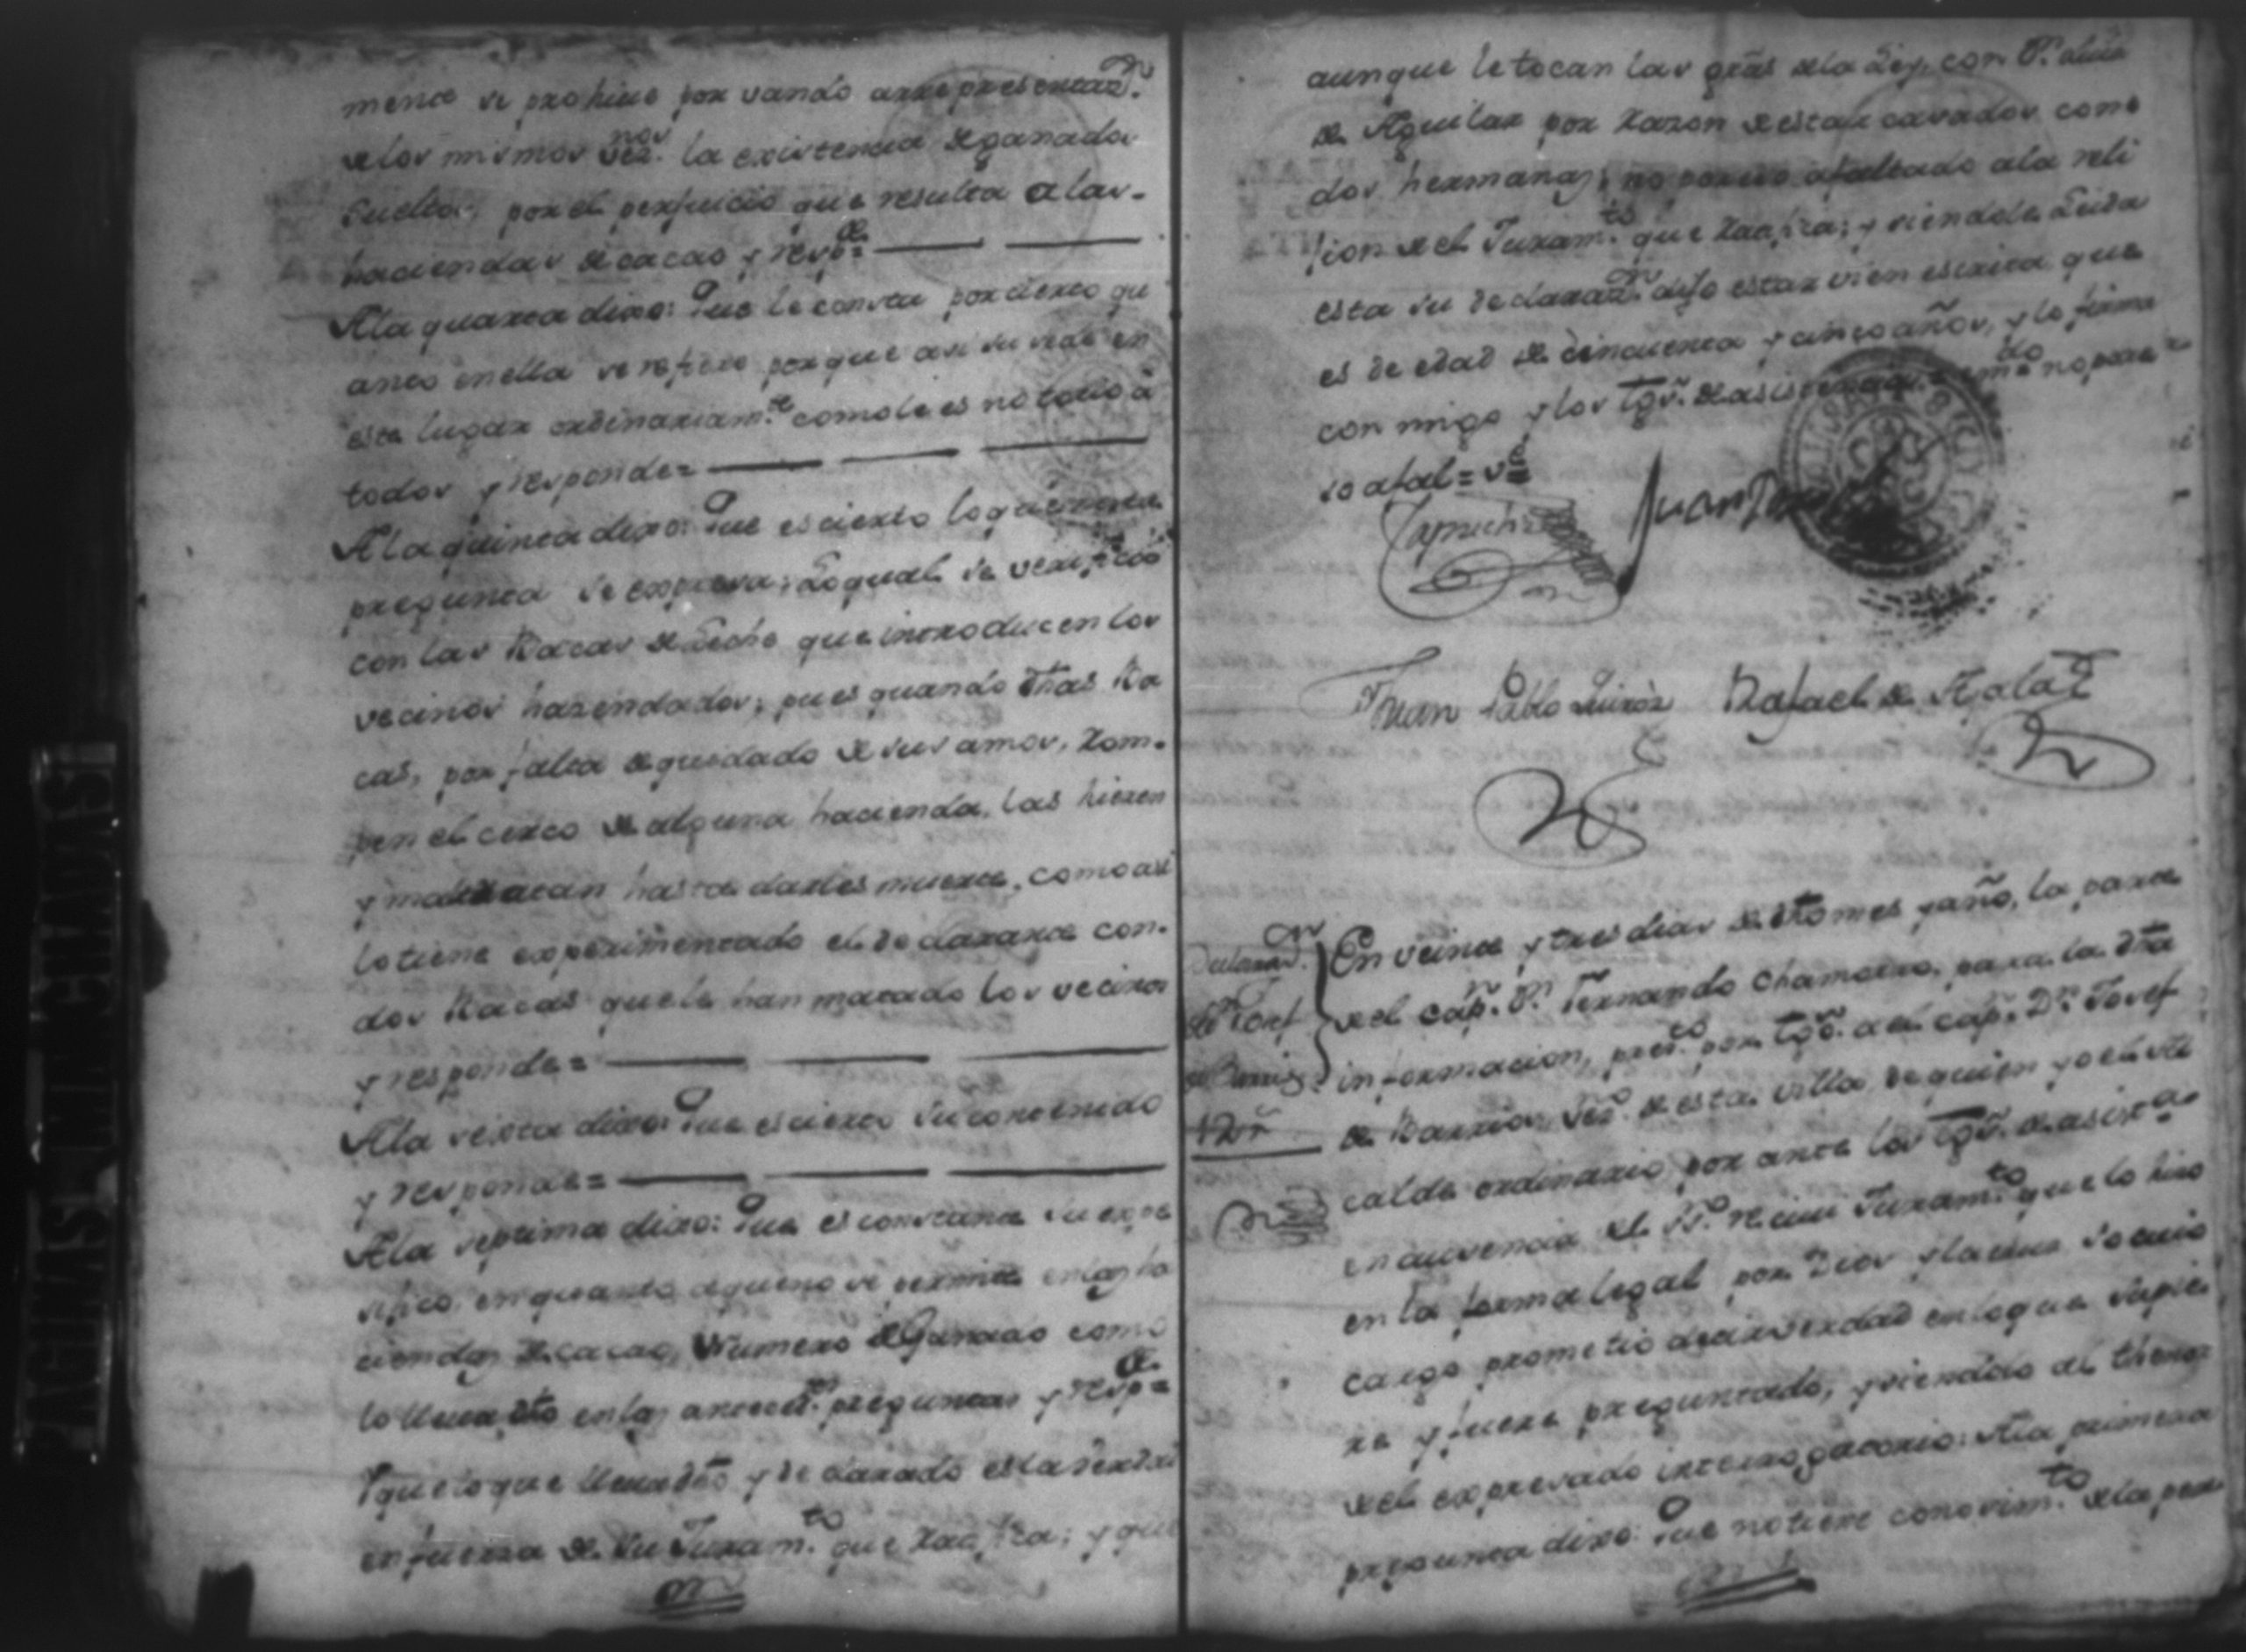 mente se prohive por vando arrepresentaz.on
de los mismos vez.nos la existencia de ganados
sueltos, por el perjuicio que resulta a las
haciendas de cacao y resp.de
A la quarta dixo: Que le consta por cierto qu
anto en ella se refiere porque asi su sede en
este lugar ordinariam.te como le es notorio a
todos y responde =
A la quinta dixo: Que es cierto lo que en esta
pregunta se expresa; Lo qual se verifico
con las Bacas de Leche que introducen los
vecinos hazendados; pues quando dhas Ba
cas, por falta de quidado de sus amos, Rom-
pen el cerco de alguna hacienda, las hieren
y maltratan hasta darles muerte, como asi
lo tiene experimentado el declarante con
dos Bacas que le han matado los vecinos
y responde =
A la sexta dixo: Que es cierto su contenido
y responde =
A la septima dixo: Que es constante su expe
sifico, en quanto a que no se permite en las ha
ciendas de cacao, Numero de Ganado como
lo lleva dho en las anteced.tes preguntas y resp.de =
Y que lo que lleva dho y declarado es la verdad
en fuerza de su Juram.to que Ratifica; y que
aunque le tocan las grãs de la Ley con D.n
de Aguilar por Razon de estar casados con
dos hermanas; no por eso a faltado a la reli
jion del Juram.to que Ratifica; y siendole Leida
esta su declaraz.on dijo estar vien escrita que
es de edad de cincuenta y cinco años, y lo firma
con migo y los tgõs. de asistencia no pare
Juan
Juan Pablo Quiroz Rafael de Aalaz
Declaraz.on
de D.n Josef
de Barrios
En veinte y tres dias de dho mes y año, la parte
del cap.n D.n Fernando Chamorro, para la dha
informacion, pres.to por tgõ. a el cap.n D.n Josef
de Barrios Vez.o de esta villa de quien yo el Al
calde ordinario por ante los tgõs. de asist.a
en ausencia del Ss.no Recivi Juram.to que lo hiso
en la forma legal por Dios y la cruz so cuio
cargo prometio decir verdad en lo que supie
re y fuere preguntado, y siendolo al thenor
del expresado interrogatorio: A la primera
pregunta dixo: Que no tiene conosim.to de la parte